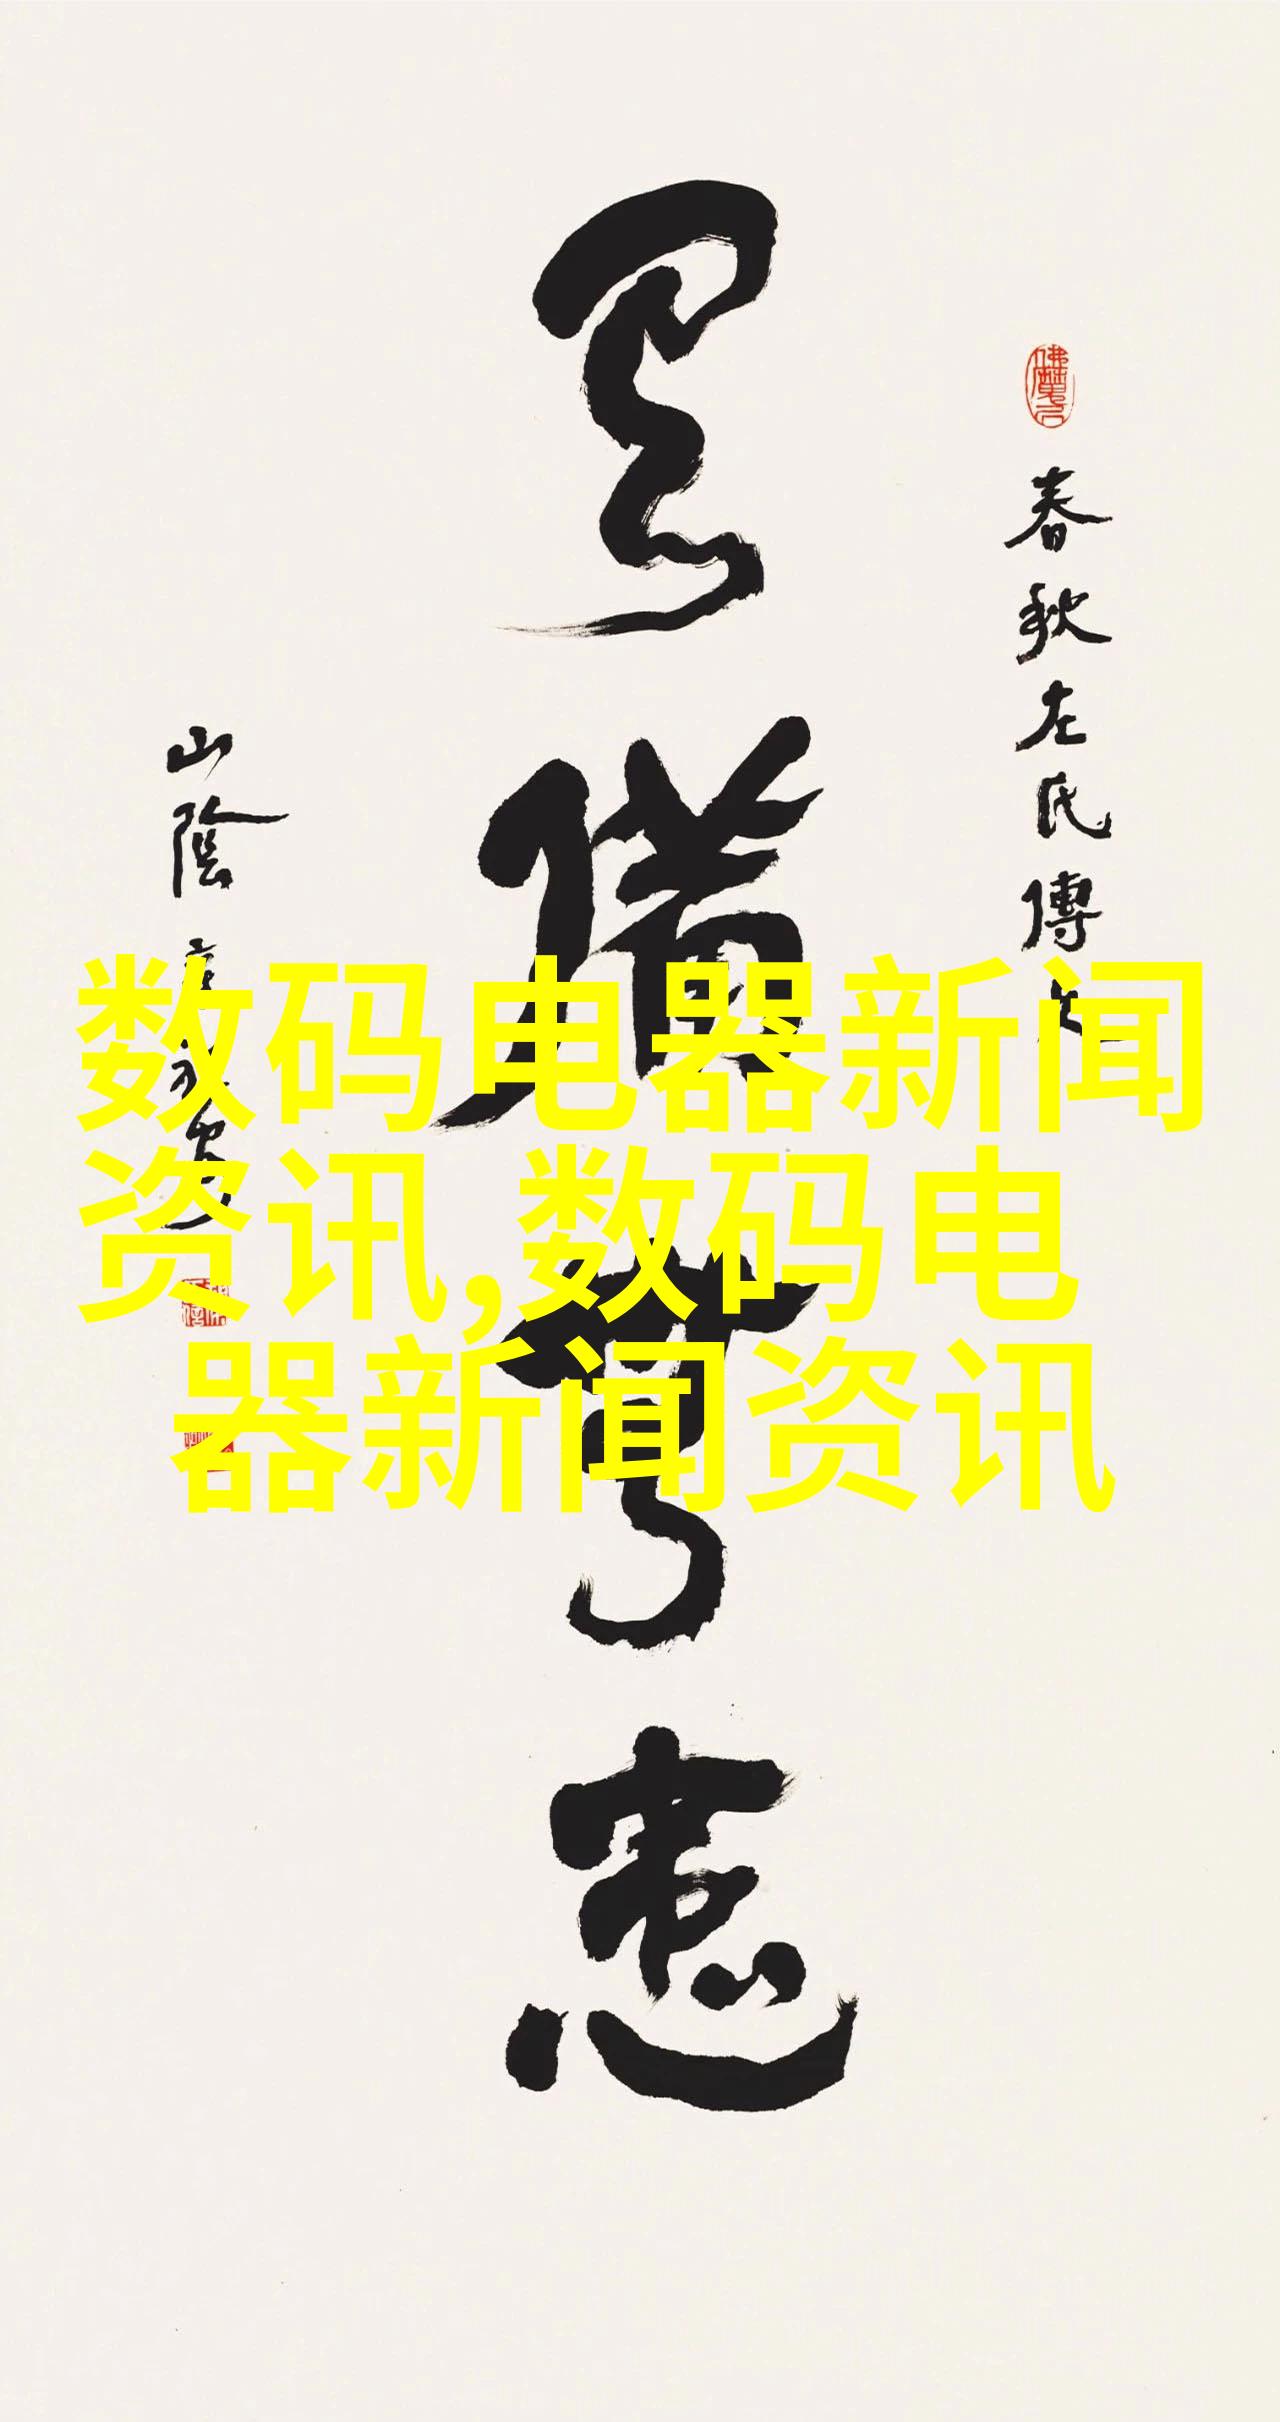 春秋左氏傳
有備無患
山陰
数码电器新闻
资讯,数码电
器新闻资讯